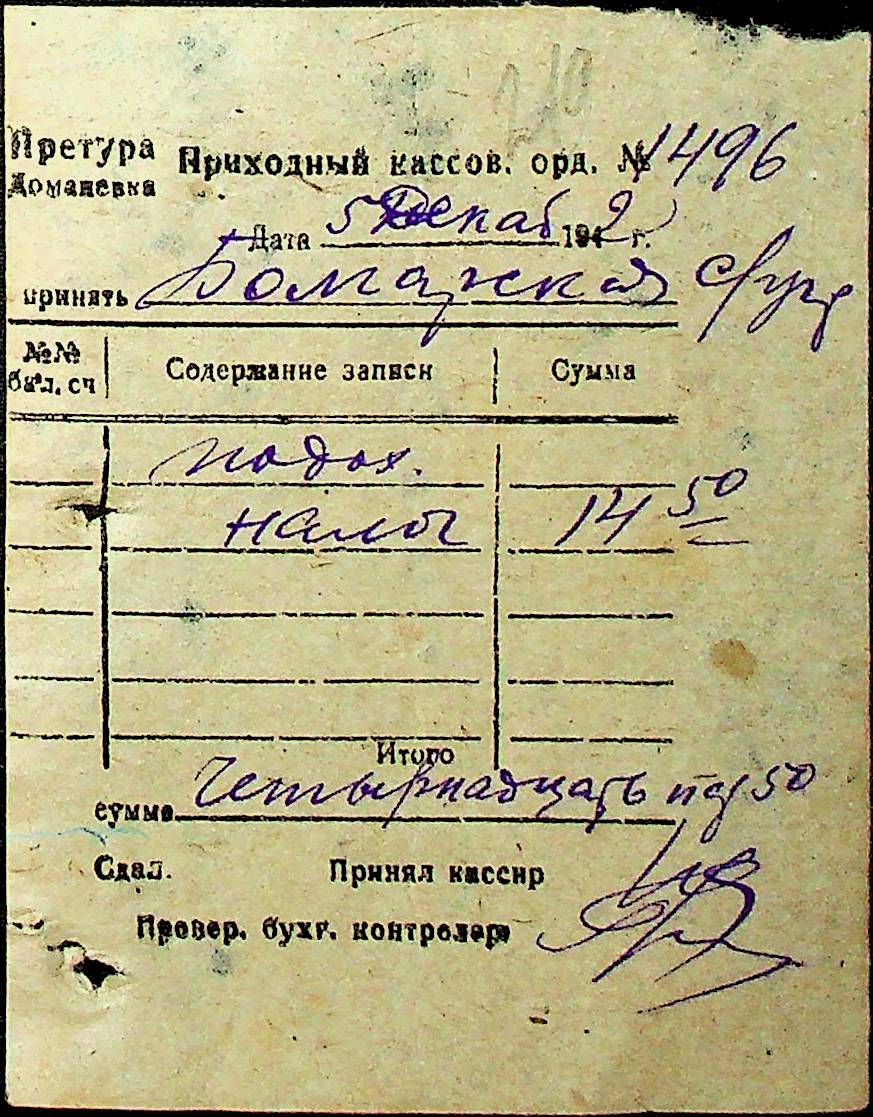 Претура Приходный кассов. орд. № 1496
Доманевка
Дата 5 Декаб 1942 г.
принять Болгарская
№№ бал. сч Содержание записи Сумма
подох.
налог 14 50
Итого
сумма Четырнадцать 50
Сдал. Принял кассир
Провер. бухг. контролер